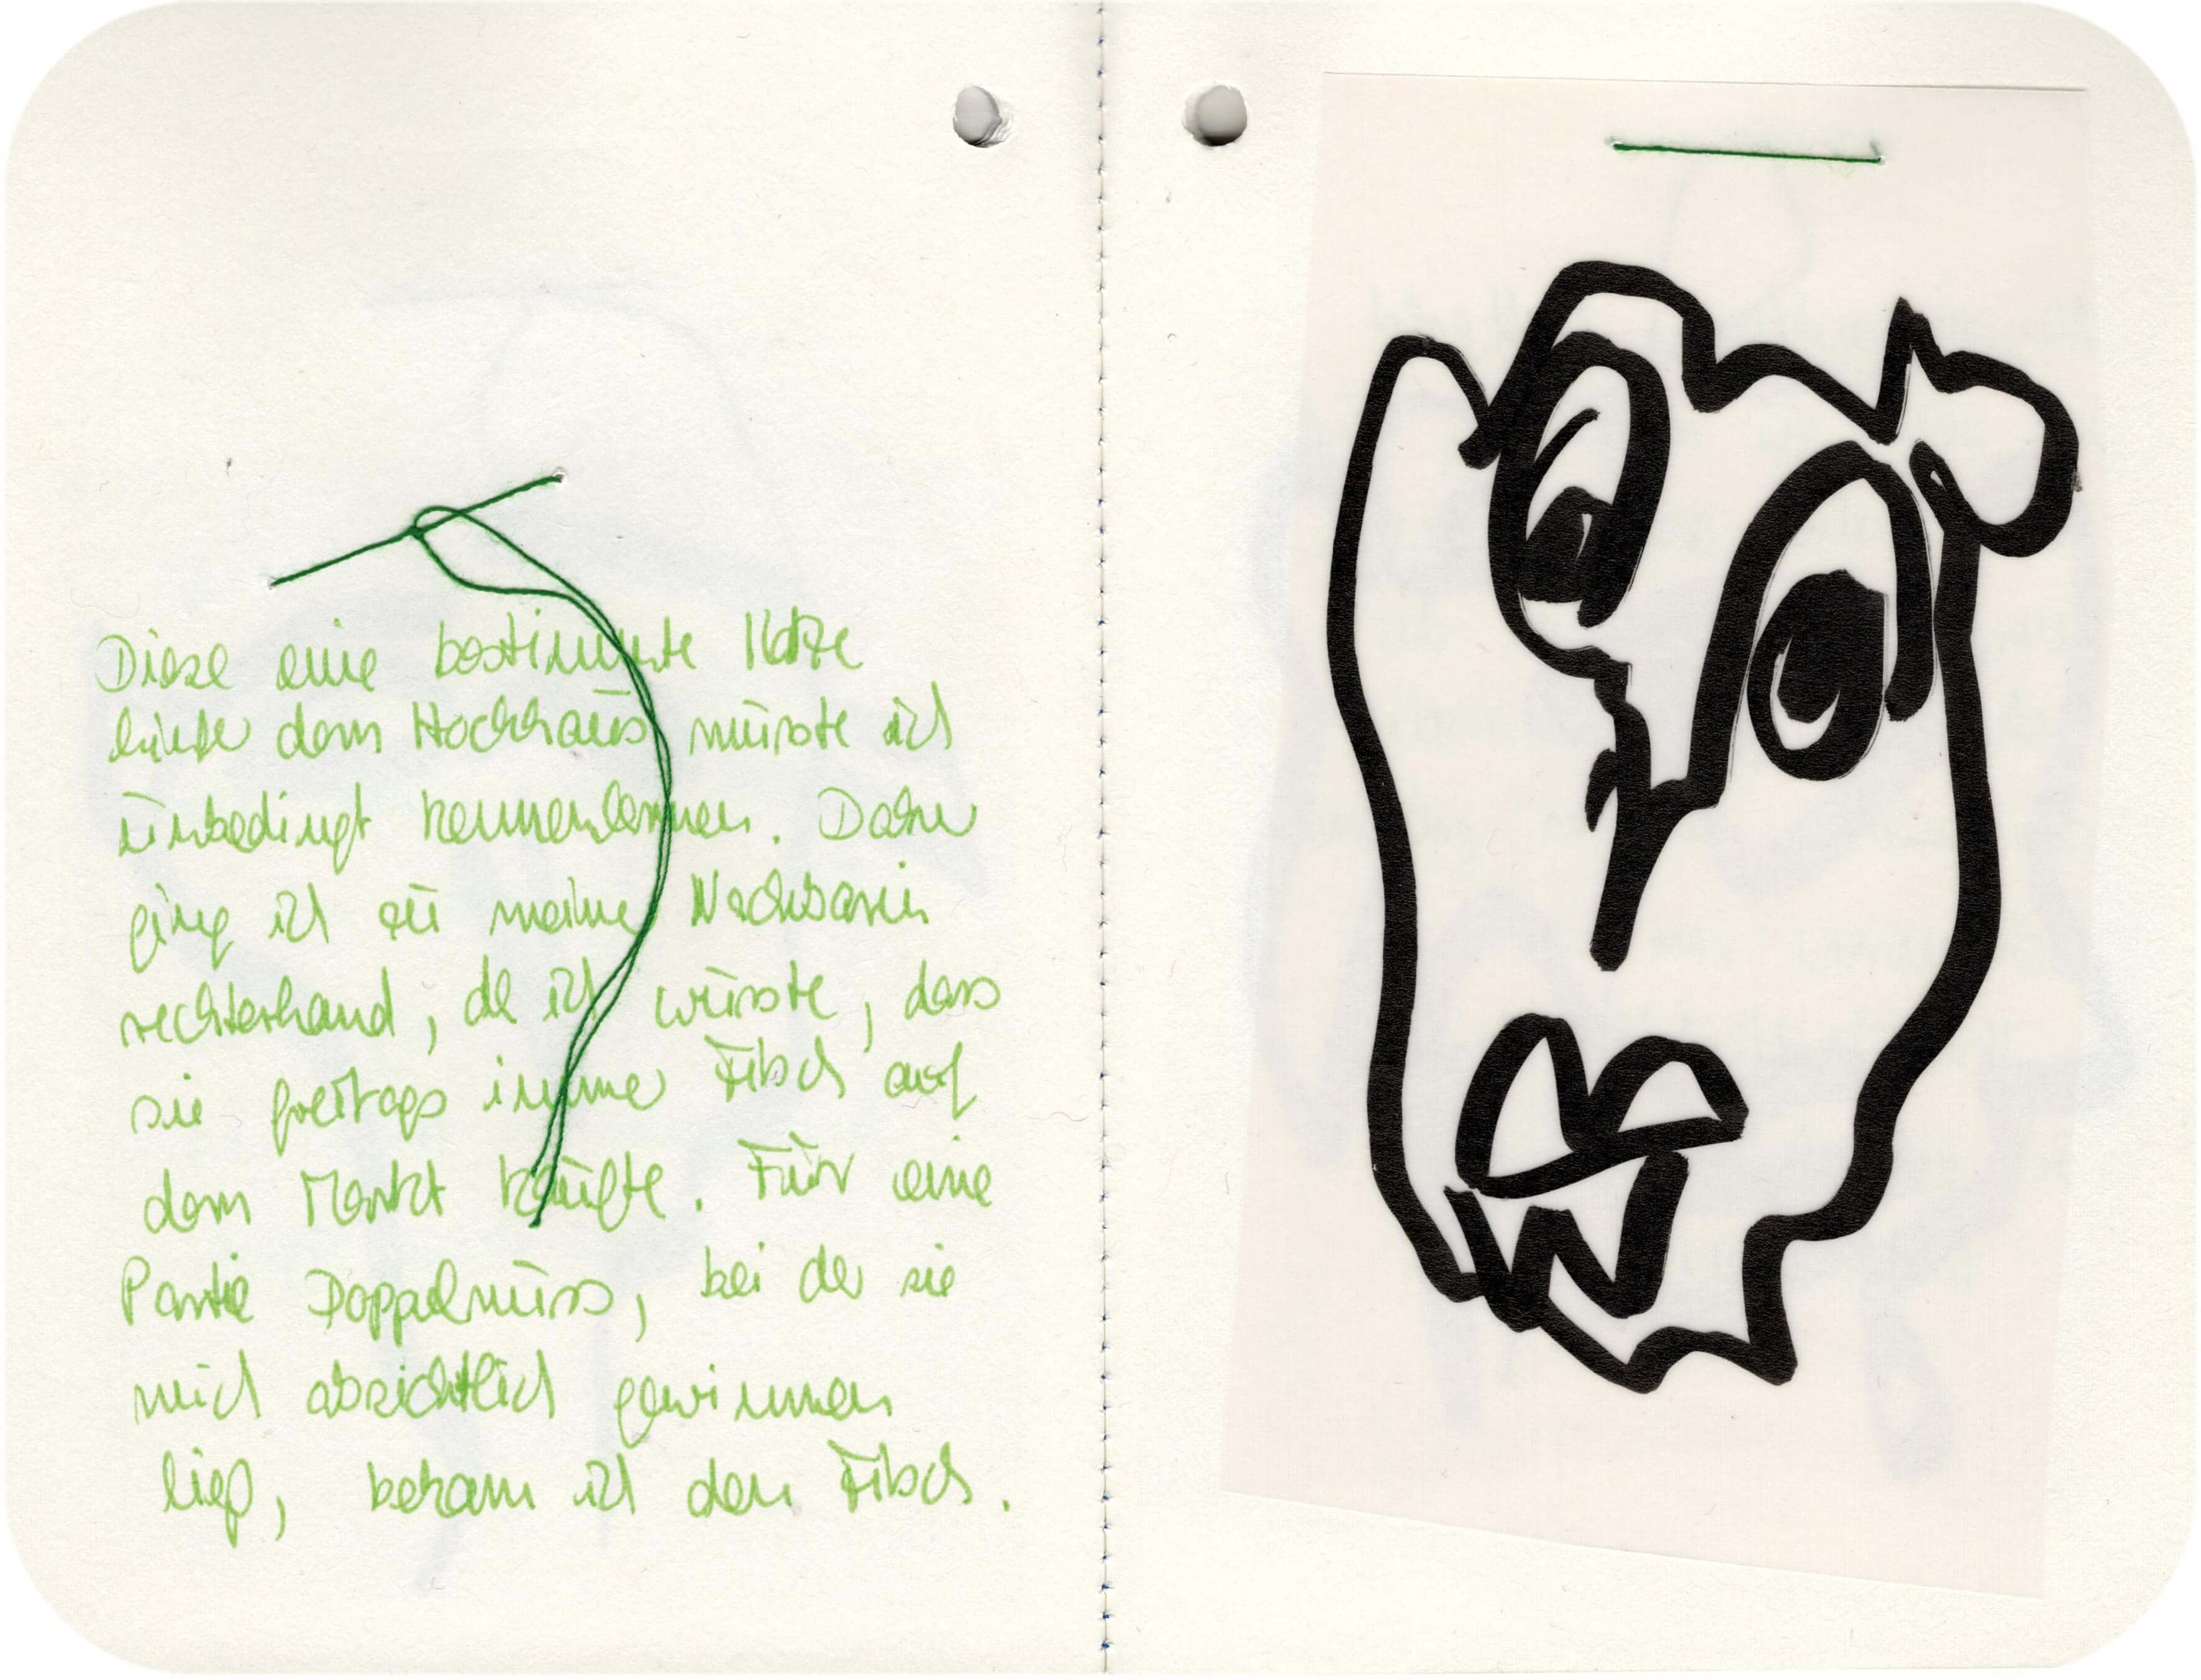 Diese eine bestimmte Katze
hinter dem Hochhaus müsste ich
unbedingt kennenlernen. Daher
ging ich zu meiner Nachbarin
rechterhand, da ich wusste, dass
sie freitags immer Fisch auf
dem Markt kaufte. Für eine
Partie Doppelmuss, bei der sie
mich absichtlich gewinnen
ließ, bekam ich den Fisch.